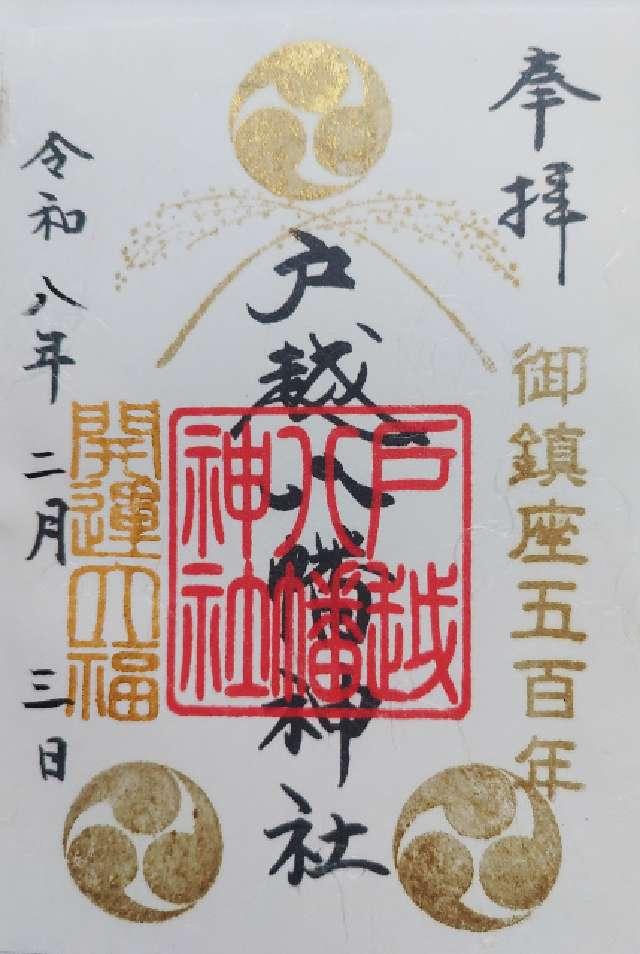 奉拝
御鎮座五百年
戸越八幡神社
戸越
八幡
神社
開運大福
令和八年二月三日